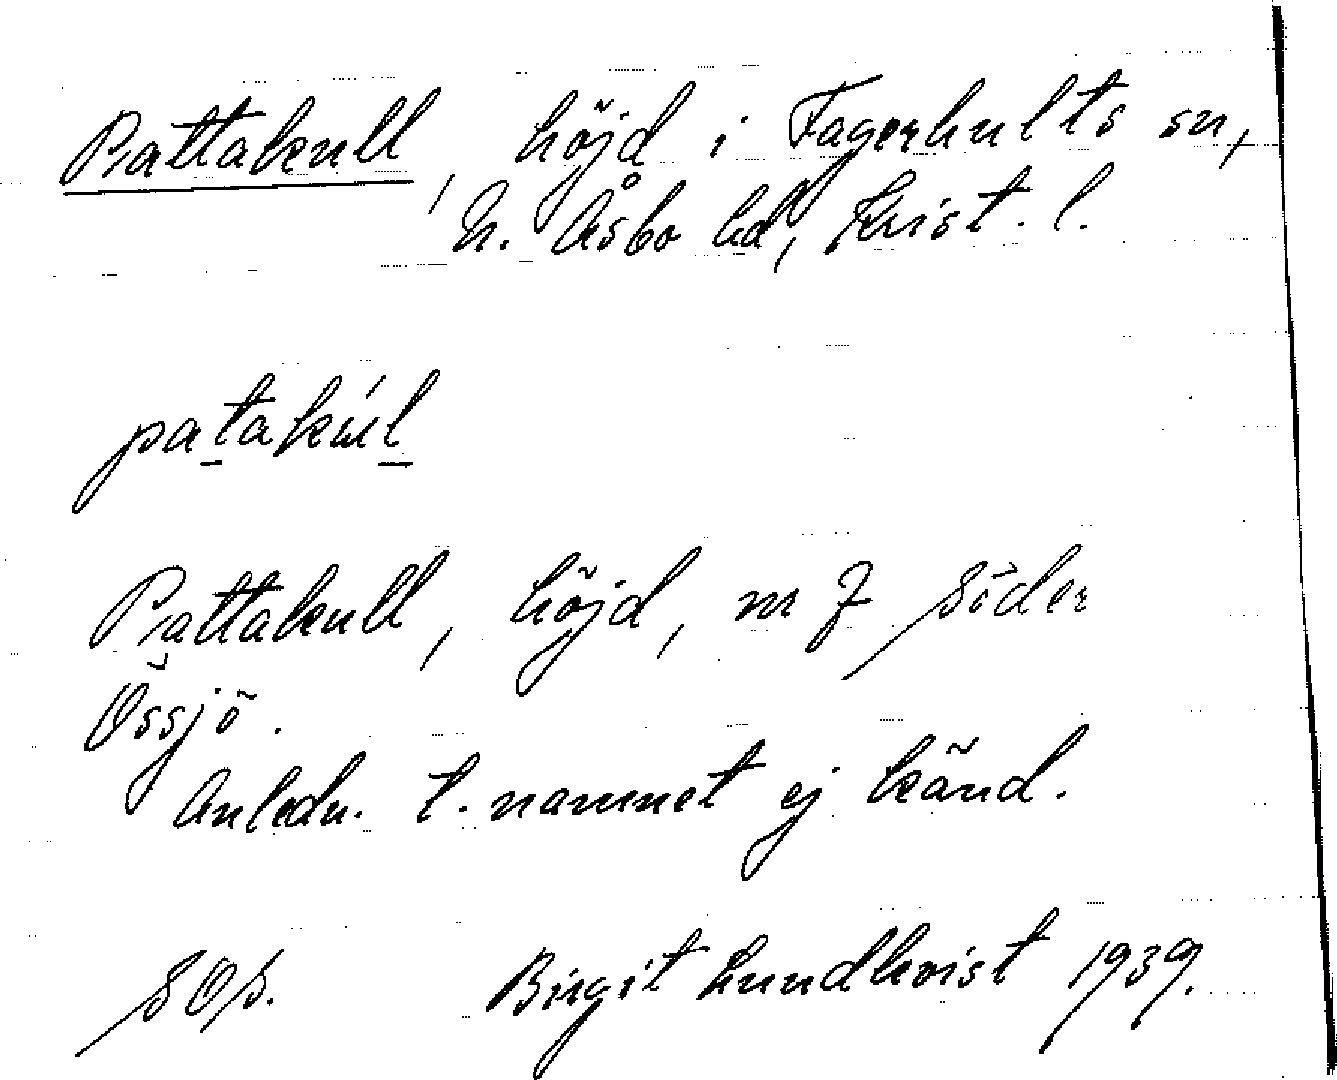 Pattakull, höjd i Fagerhults sn,
N. Åsbo hd, Krist. l.
patakúl
Pattakull, höjd, n f söder
Össjö.
Anledn. t. namnet ej känd.
Birgit Lundkvist 1939.